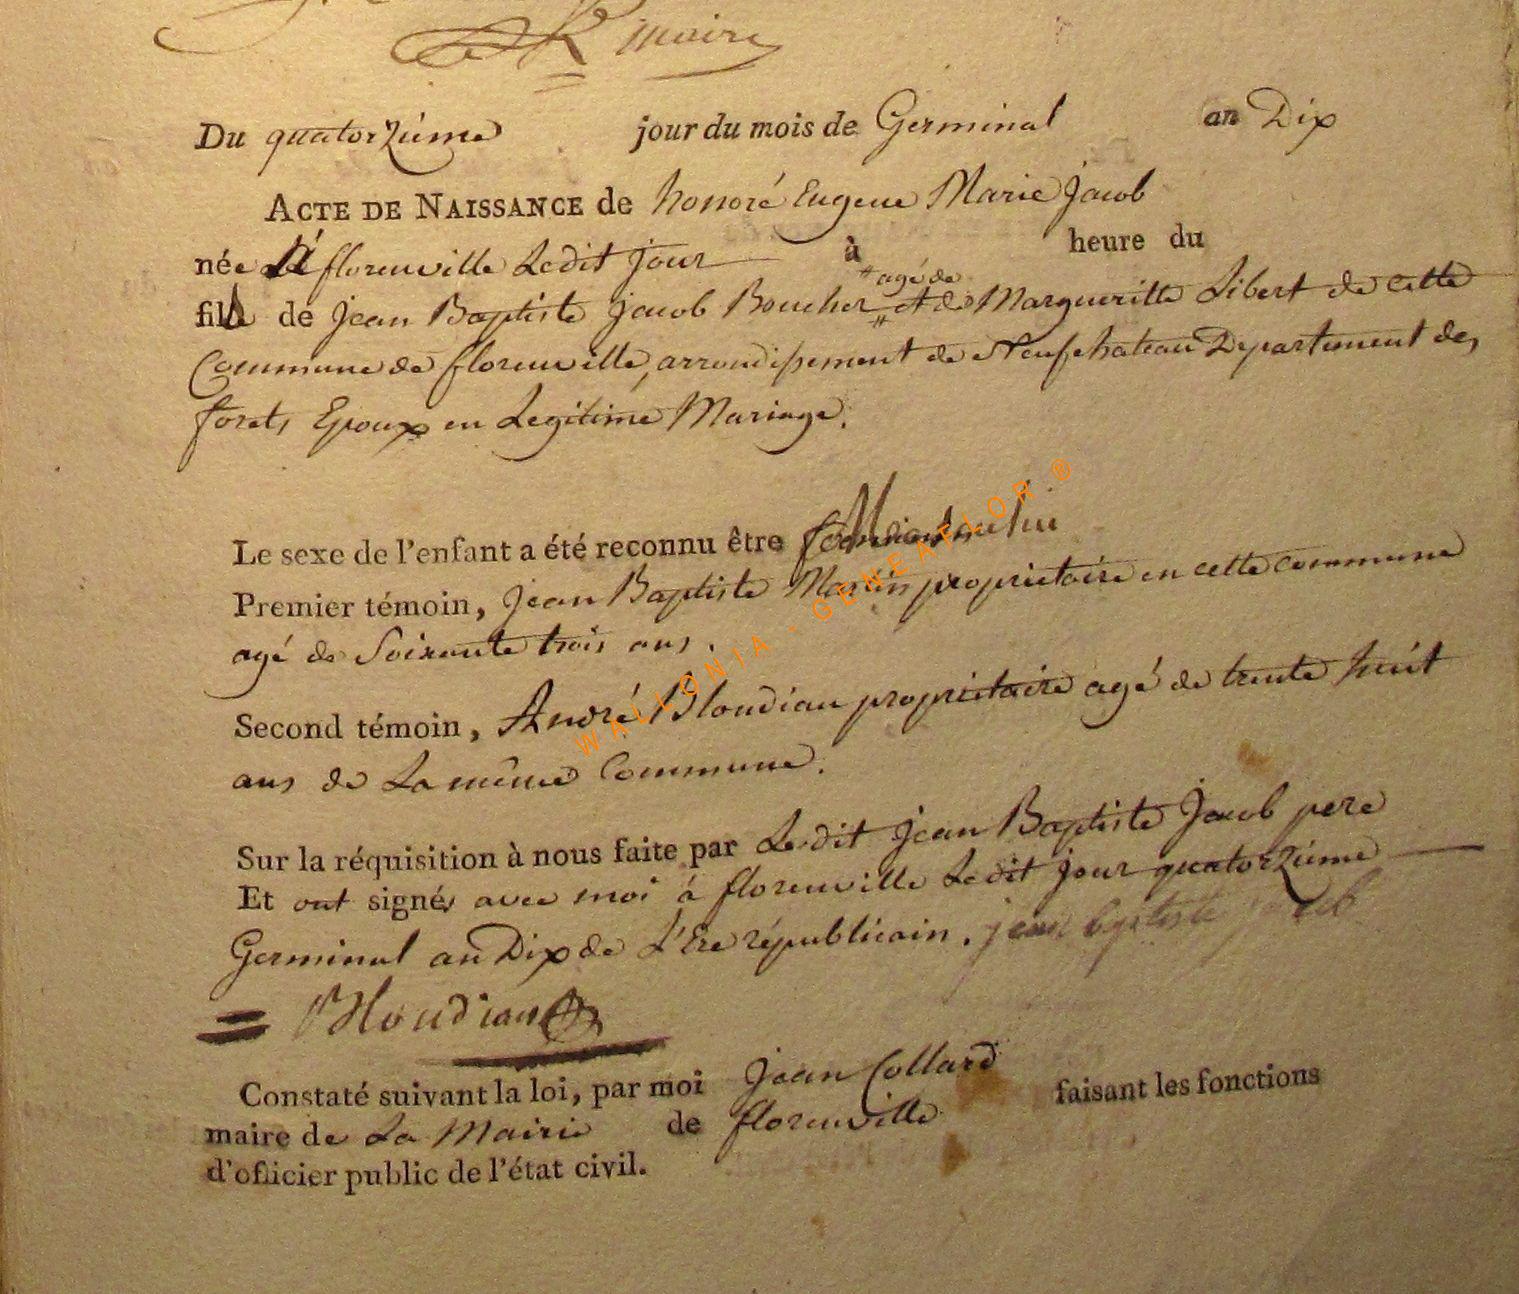 maire
Du quatorziéme jour du mois de Germinal an Dix
ACTE DE NAISSANCE de honoré Eugene Marie Jacob
née á florenville Ledit jour à heure du
agé de
fils de Jean Baptiste Jacob Boucher et de Margueritte Libert de cette
Commune de florenville, arrondissement de Neufchateau Departement des
forets Epoux en Legitime Mariage.
Le sexe de l'enfant a été reconnu être Masculin
Premier témoin, Jean Baptiste Martin proprietaire en cette commune
agé de Soixante trois ans.
Second témoin, André Bloudiau proprietaire agé de trente huit
ans de La même Commune.
Sur la réquisition à nous faite par Ledit Jean Baptiste Jacob pere
Et ont signés avec moi á florenville Ledit jour quatorziéme
Germinal an Dix de L'Ere républicain. jean baptiste jacob
Bloudiau
Constaté suivant la loi, par moi Jean Collard
maire de La Mairie de florenville faisant les fonctions
d'officier public de l'état civil.
WALLONIA - GENEAFLOR ®